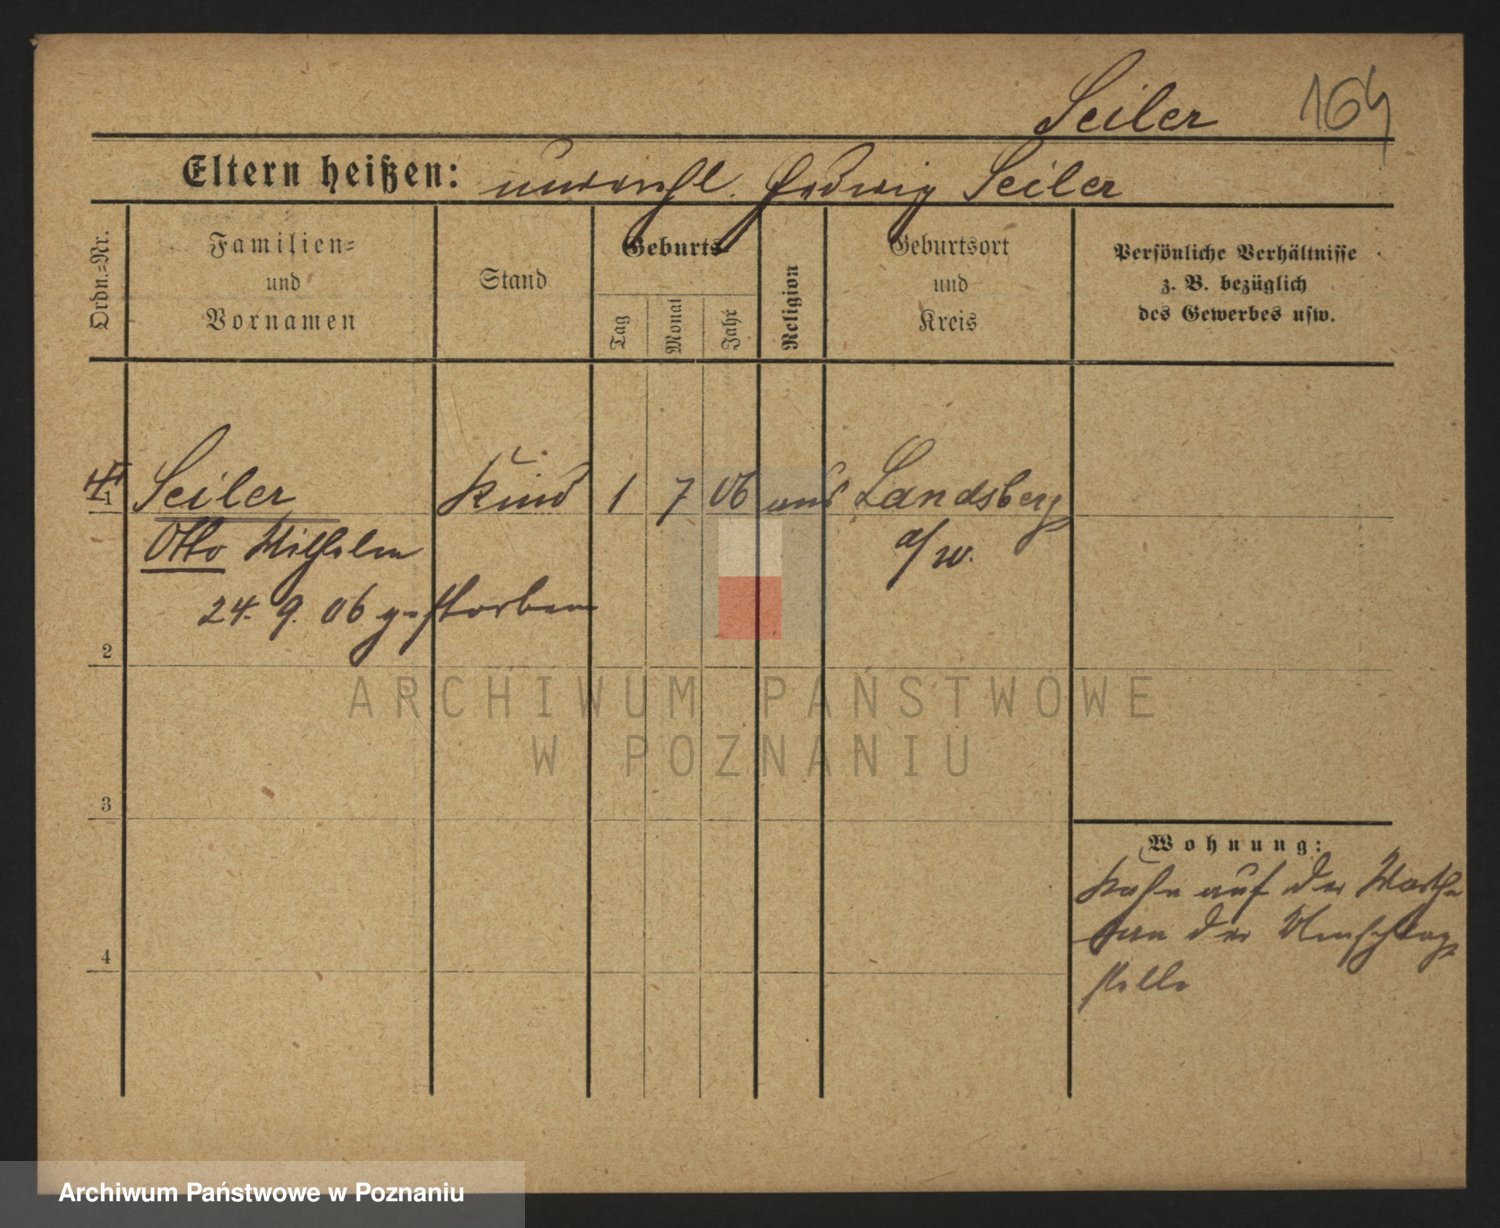 Seiler 164
Eltern heißen: unverehl. Hedwig Seiler
Ordn.=Nr.
Familien=
und
Vornamen
Stand
Geburts
Tag
Monat
Jahr
Religion
Geburtsort
und
Kreis
Persönliche Verhältnisse
z. B. bezüglich
des Gewerbes usw.
1 Seiler Kind 1 7 06 Landsberg
Otto Wilhelm a/w.
24. 9. 06 gestorben
2
3
4
Wohnung:
Kahn auf der Warthe
an der Umschlag
stelle
ARCHIWUM PAŃSTWOWE
W POZNANIU
Archiwum Państwowe w Poznaniu